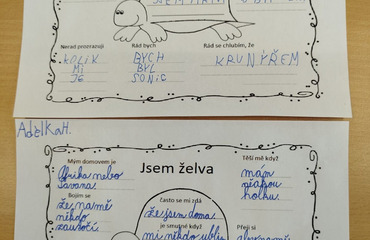 Nerad prozrazuji
Rád bych
Rád se chlubím, že
KOLIK
MI
JE
BYCH
BYL
SONIC
KRUNÝŘEM
Adélka H.
Mým domovem je
Jsem želva
Těší mě když
Afrika nebo
Savana.
mám
nějakou
holku.
Bojím se
často se mi zdá
že na mě
někdo
zaútočí.
že jsem doma.
je smutné když
mi někdo ublíží
Přeji si